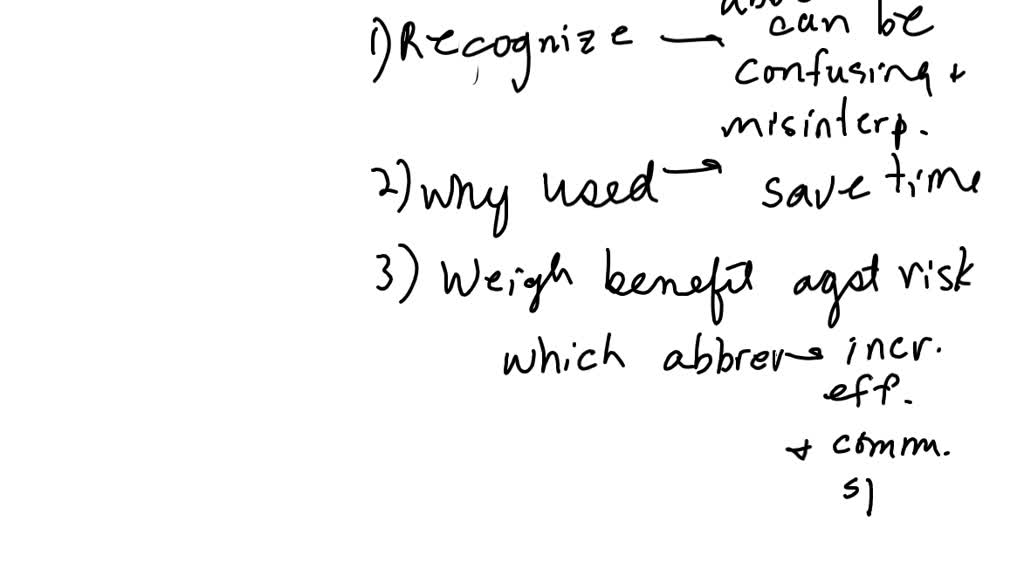 1) Recognize → can be
confusing +
misinterp.
2) Why used → save time
3) Weigh benefit agst risk
which abbrev → incr.
eff.
+ comm.